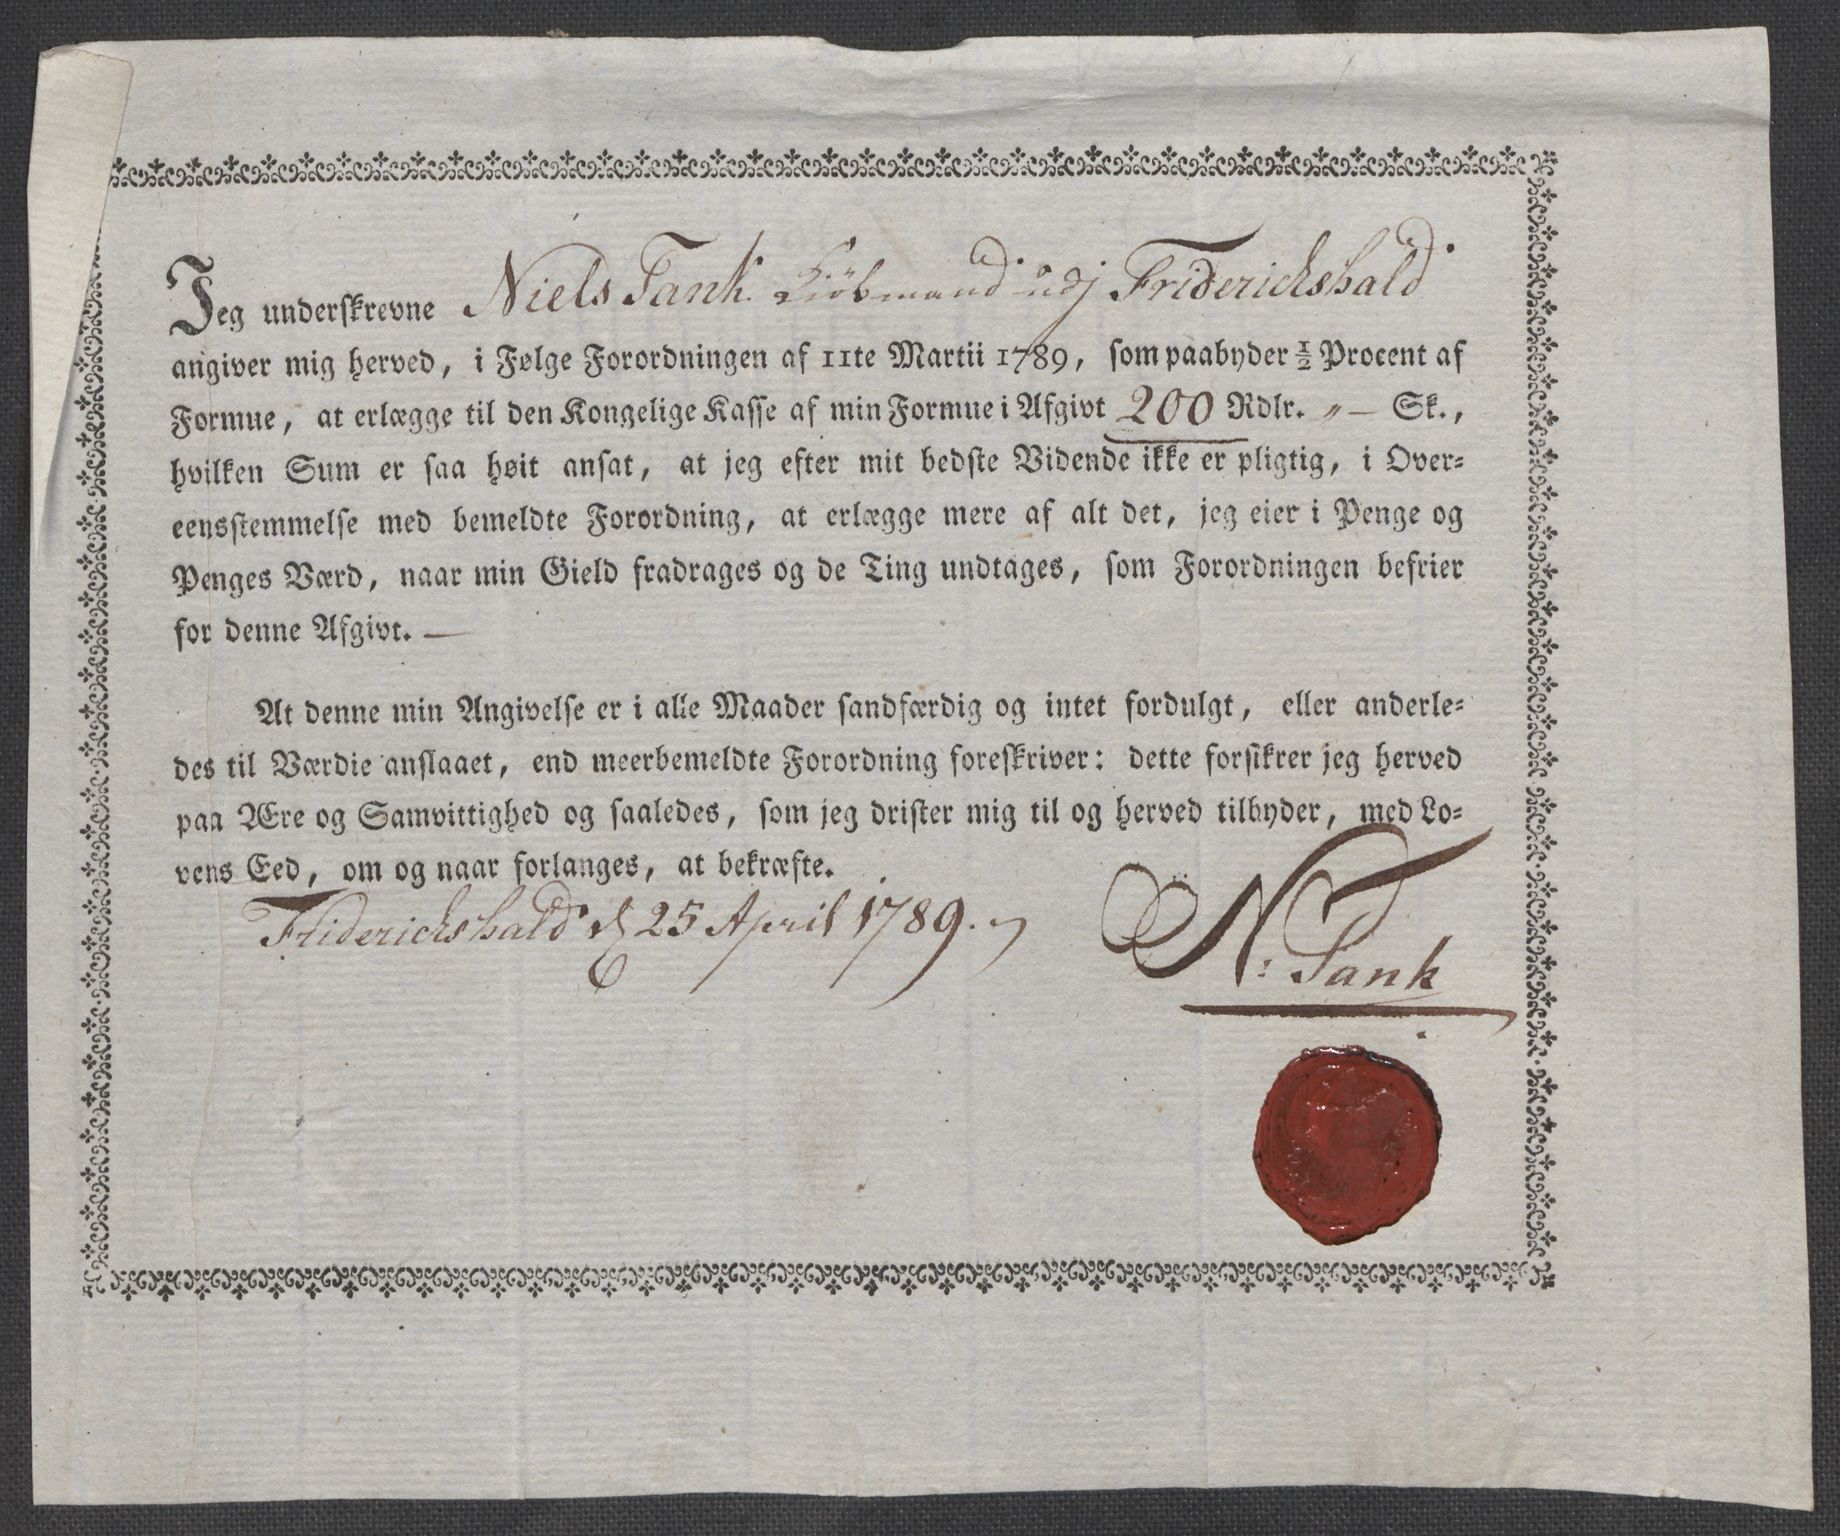 Jeg underskrevne Niels Tank Kiöbmand udj Friderichshald
angiver mig herved, i Følge Forordningen af 11te Martii 1789, som paabyder ½ Procent af
Formue, at erlægge til den Kongelige Kasse af min Formue i Afgivt 200 Rdlr. „— Sk.,
hvilken Sum er saa høit ansat, at jeg efter mit bedste Vidende ikke er pligtig, i Over=
eensstemmelse med bemeldte Forordning, at erlægge mere af alt det, jeg eier i Penge og
Penges Værd, naar min Gield fradrages og de Ting undtages, som Forordningen befrier
for denne Afgivt. —
At denne min Angivelse er i alle Maader sandfærdig og intet fordulgt, eller anderle=
des til Værdie anslaaet, end meerbemeldte Forordning foreskriver: dette forsikrer jeg herved
paa Ære og Samvittighed og saaledes, som jeg drister mig til og herved tilbyder, med Lo=
vens Eed, om og naar forlanges, at bekræfte.
Friderichshald d 25 April 1789.
N: Tank